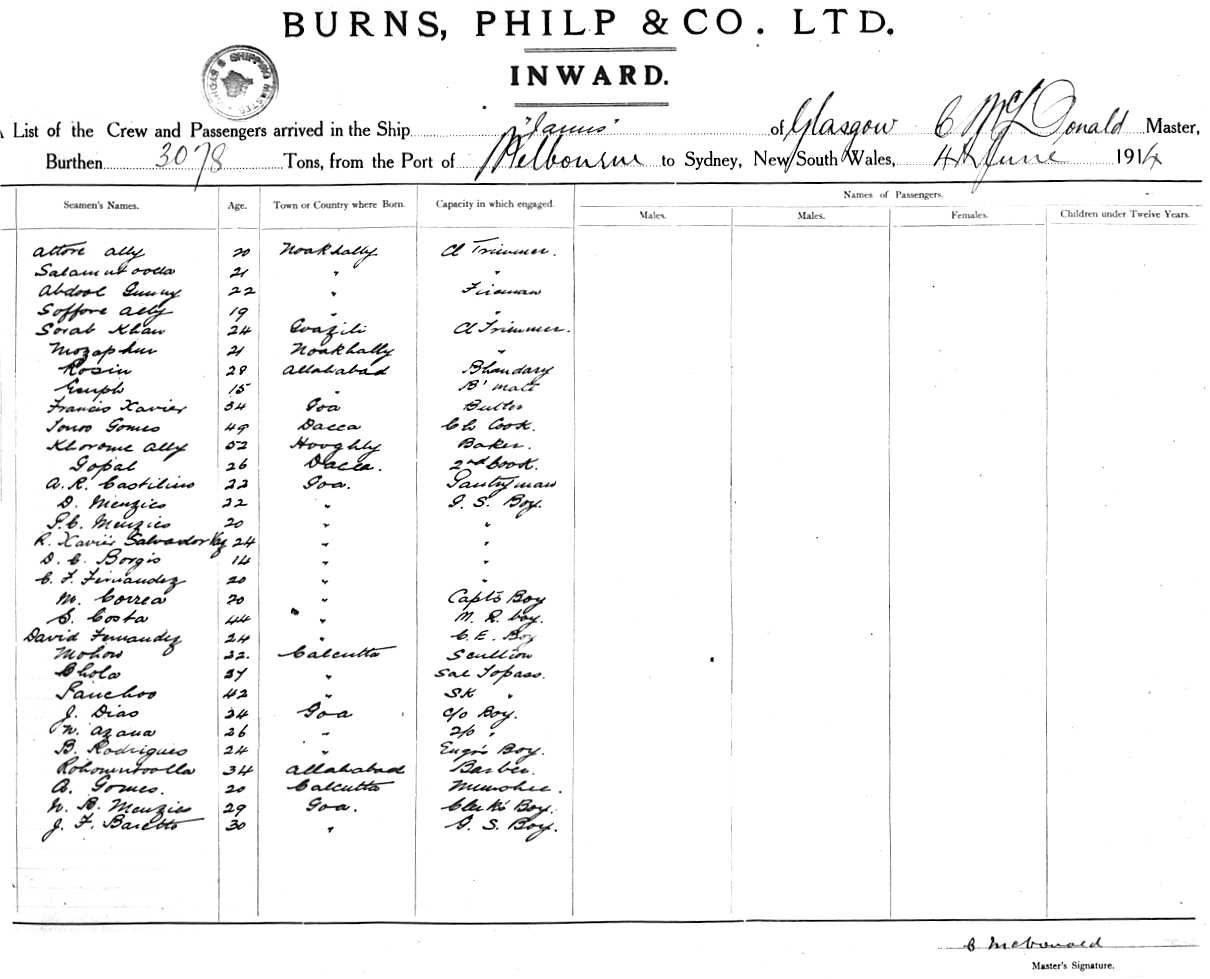 BURNS, PHILP & CO. LTD.
INWARD.
List of the Crew and Passengers arrived in the Ship "Janus" of Glasgow C McDonald Master,
Burthen 3078 Tons, from the Port of Melbourne to Sydney, New South Wales, 4th June 1914
Names of Passengers.
Seamen's Names. Age. Town or Country where Born. Capacity in which engaged. Males. Males. Females. Children under Twelve Years.
Attore Ally 20 Noakhally Cl Trimmer.
Salamutoolla 21 " "
Abdool Gunny 22 " Fireman
Soffore Ally 19 " "
Sorab Khan 24 Cl Trimmer.
Mozaphur 21 Noakhally "
Rosin 28 Allahabad Bhandary
15 " B' mate
Francis Xavier 34 Goa Butler
Gomes 49 Dacca Ch Cook.
Khorome Ally 52 Hooghly Baker.
Gopal 26 Dacca. 2nd Cook.
A. R. Castilino 22 Goa. Pantryman
D. Menzies 22 " G. S. Boy.
P. C. Menzies 20 " "
R. Xavier Salvador Vaz 24 " "
D. C. Borgis 14 " "
C. F. Fernandez 20 " "
M. Correa 20 " Capt's Boy
S. Costa 44 " M. R. boy.
David Fernandez 24 " C. E. Boy
Mohon 22. Calcutta Scullion
Bhola 37 " Sal Topass.
Panchoo 42 " SK "
J. Dias 24 Goa c/o Boy.
N. Azana 26 " 2/o "
B. Rodrigues 24 " Engrs Boy.
Rohomutoolla 34 Allahabad Barber.
A. Gomes. 20 Calcutta Munshee.
N. B. Menzies 29 Goa. Clerk's Boy.
J. F. Baretto 30 " G. S. Boy.
C McDonald
Master's Signature.